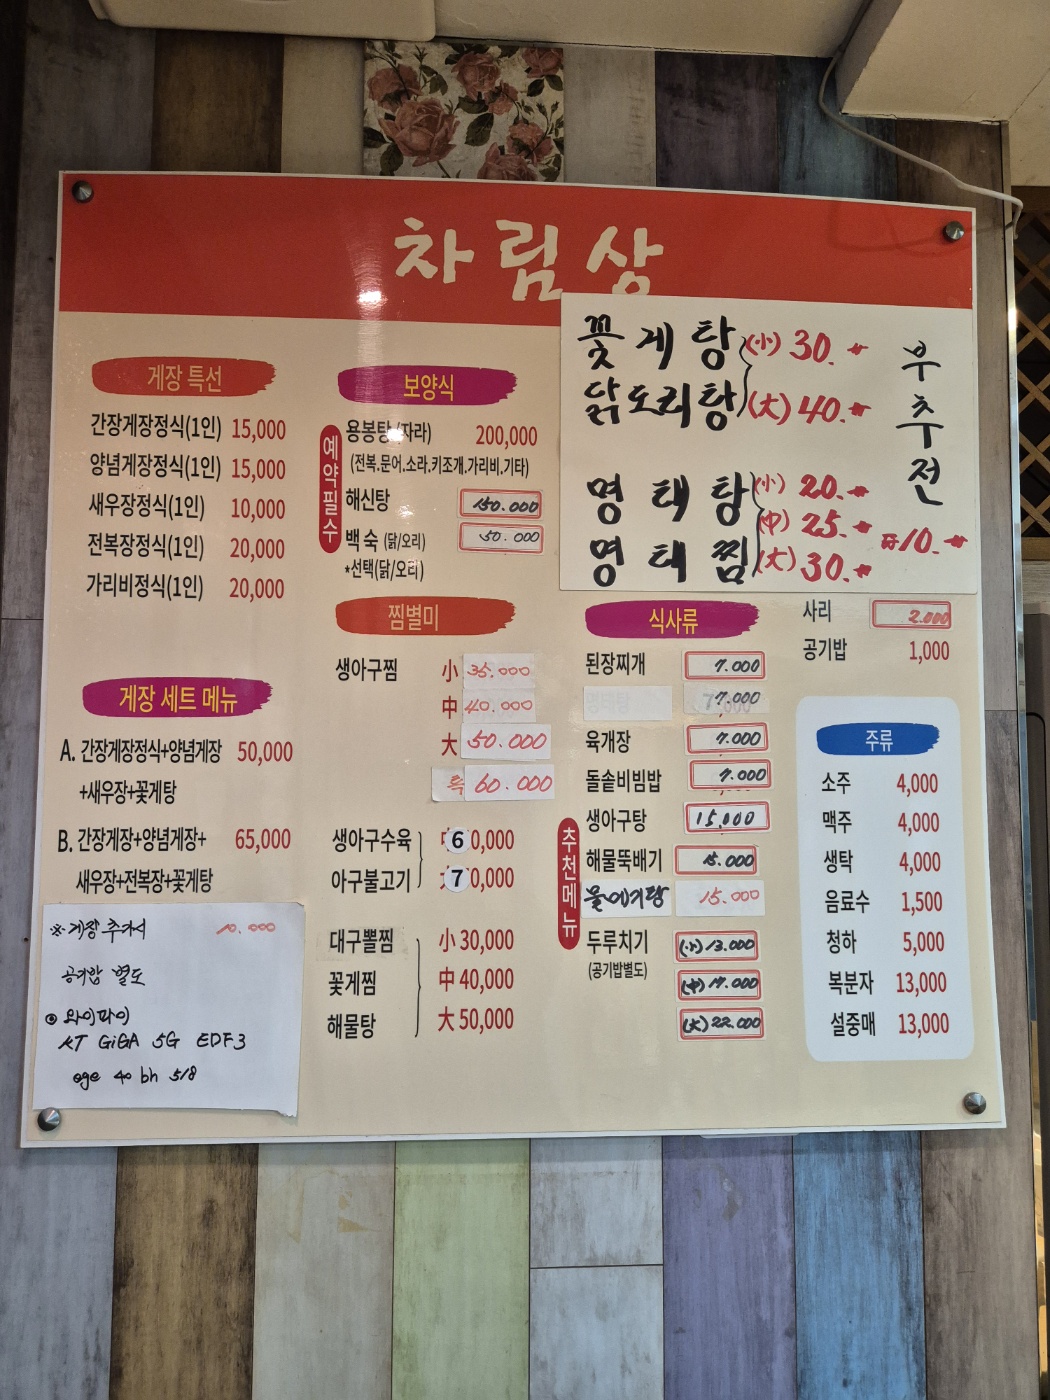 차림상
게장 특선
간장게장정식(1인) 15,000
양념게장정식(1인) 15,000
새우장정식(1인) 10,000
전복장정식(1인) 20,000
가리비정식(1인) 20,000
게장 세트 메뉴
A. 간장게장정식+양념게장 50,000
+새우장+꽃게탕
B. 간장게장+양념게장+ 65,000
새우장+전복장+꽃게탕
※ 게장 추가시 10.000
공기밥 별도
와이파이
KT GiGA 5G EDF3
ege 40 bh 518
보양식
예약필수
용봉탕(자라) 200,000
(전복.문어.소라.키조개.가리비.기타)
해신탕 150.000
백숙 (닭/오리) 50.000
*선택(닭/오리)
찜별미
생아구찜 小 35.000
中 40.000
大 50.000
특 60.000
생아구수육 60,000
아구불고기 70,000
대구뽈찜 小 30,000
꽃게찜 中 40,000
해물탕 大 50,000
꽃게탕 (小) 30.
닭도리탕 (大) 40.
명태탕 (小) 20.
(中) 25.
명태찜 (大) 30.
부추전
10.
식사류
된장찌개 7.000
7.000
육개장 7.000
돌솥비빔밥 7.000
추천메뉴
생아구탕 15,000
해물뚝배기 15.000
물메기탕 15.000
두루치기 (小) 13.000
(공기밥별도) (中) 17.000
(大) 22.000
사리 2.000
공기밥 1,000
주류
소주 4,000
맥주 4,000
생탁 4,000
음료수 1,500
청하 5,000
복분자 13,000
설중매 13,000